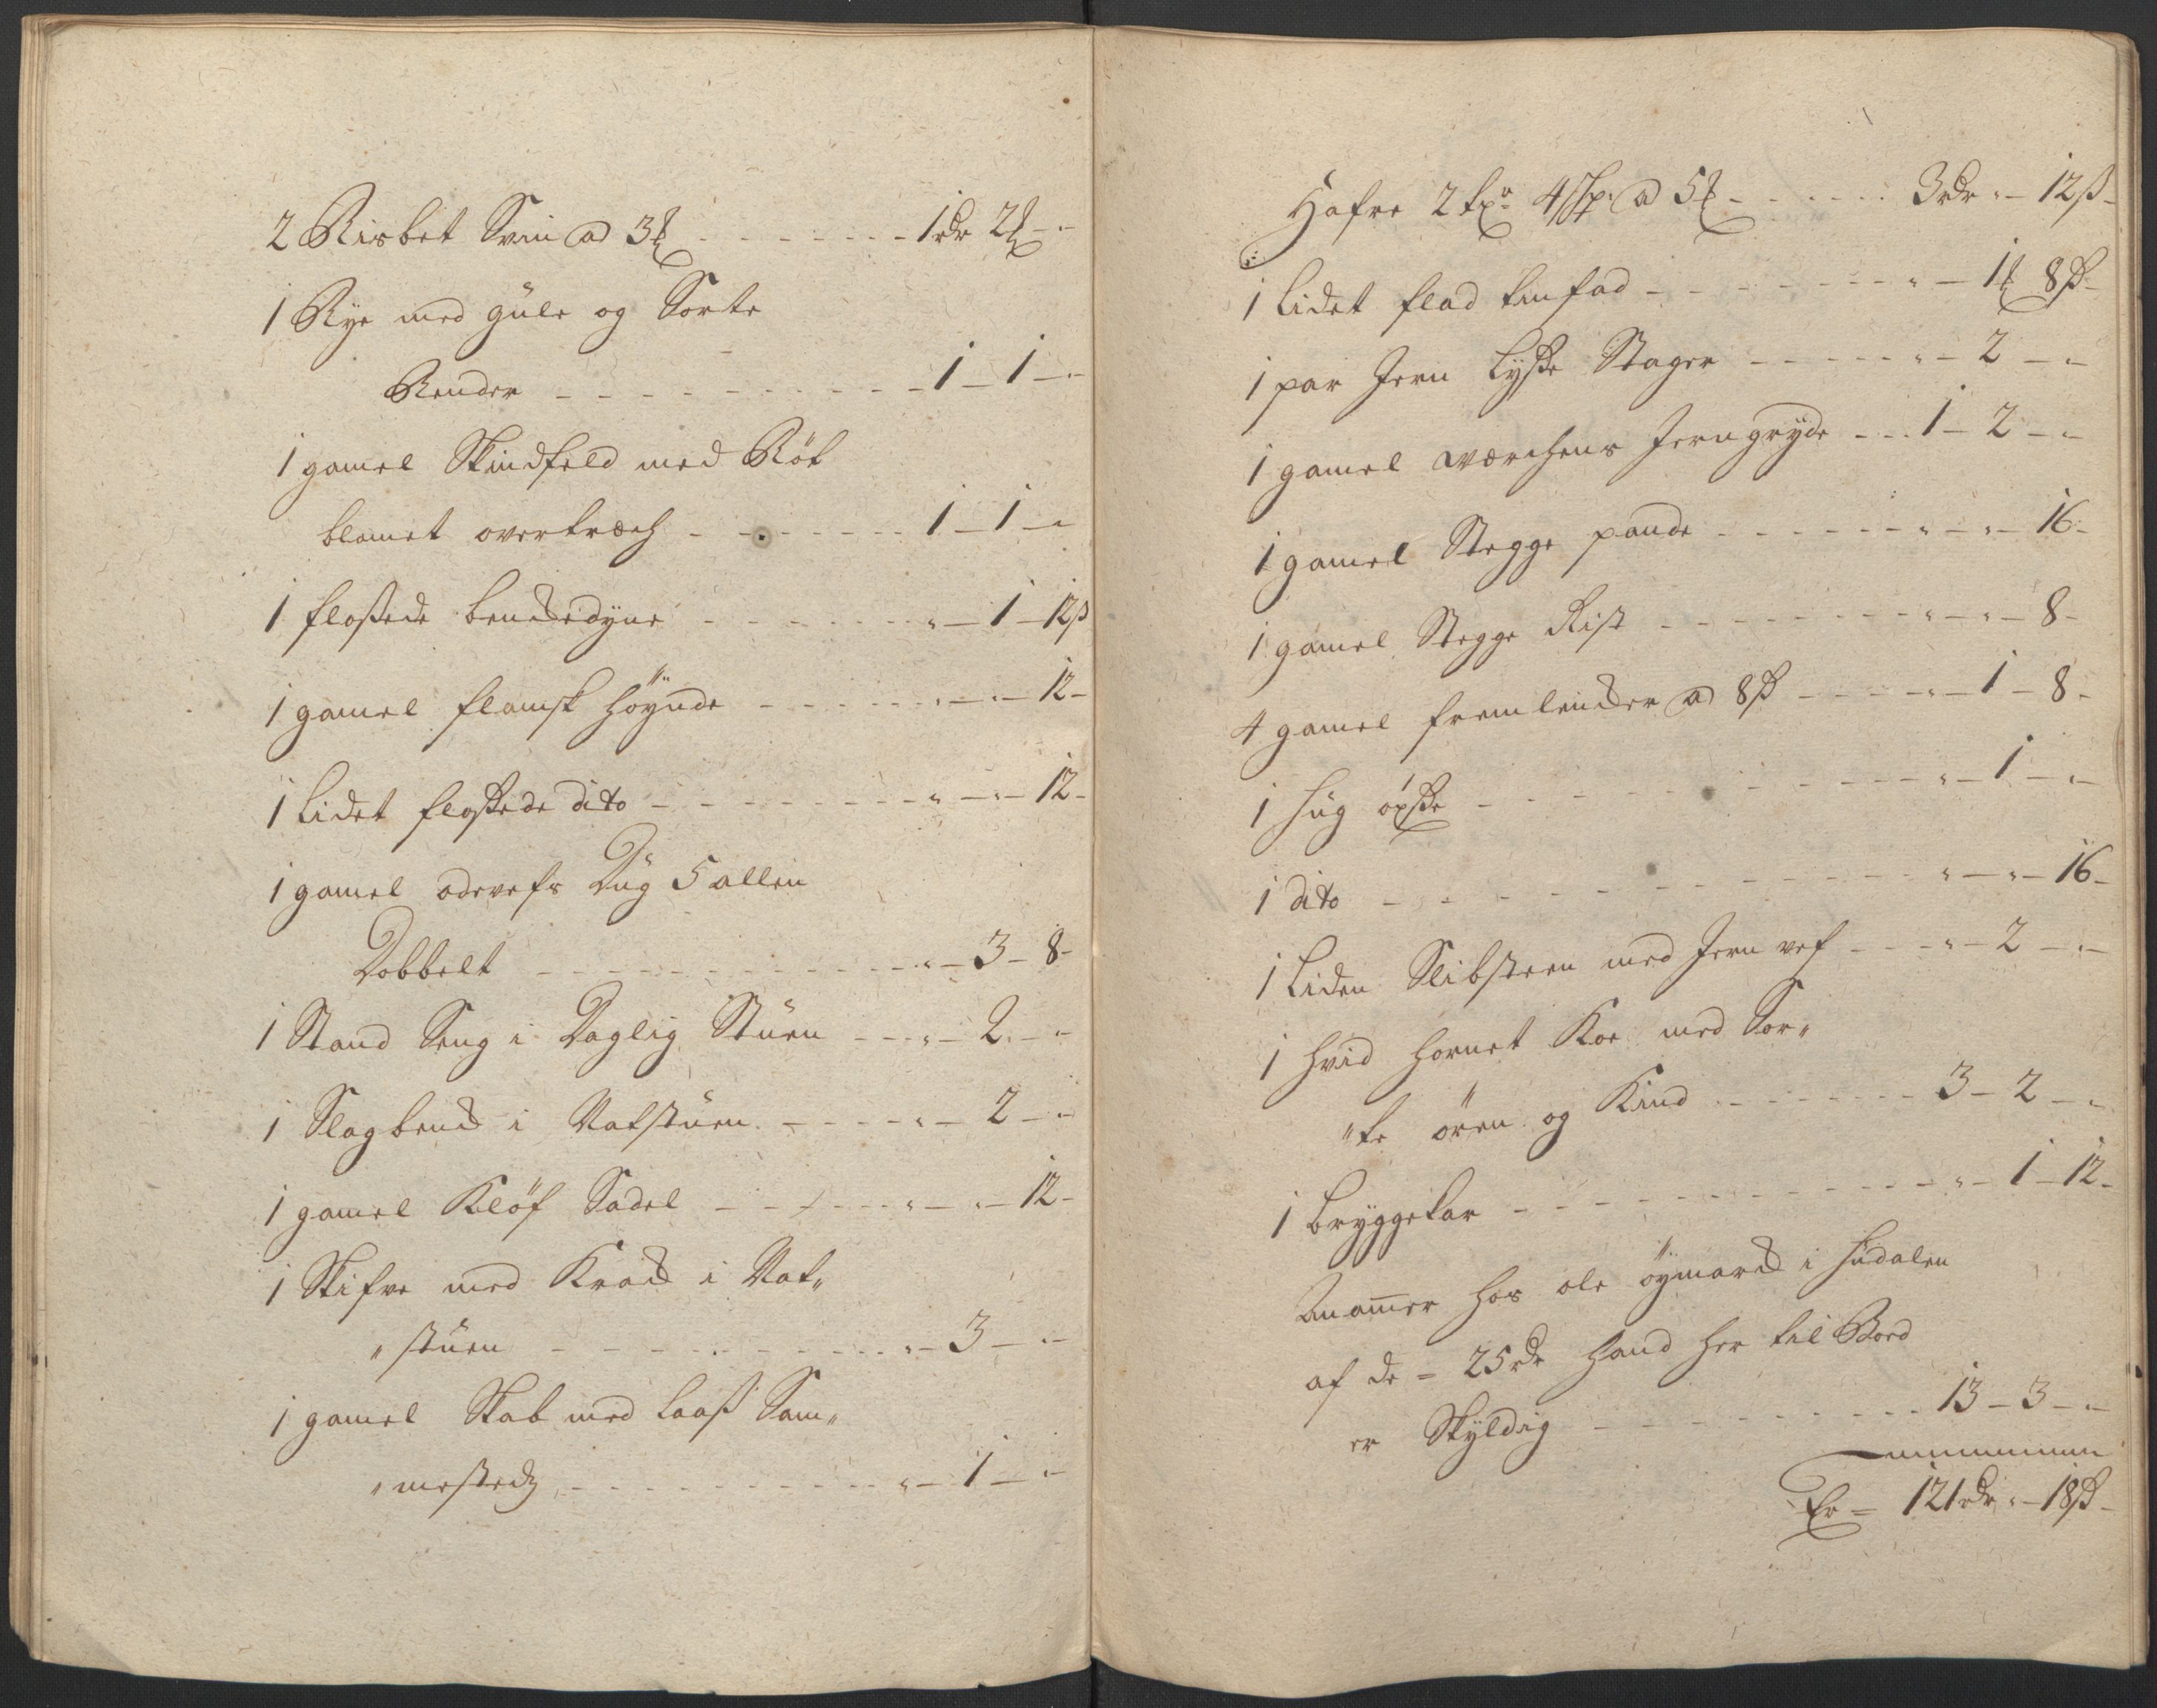 2 Risbet Svin ad 3 ℔ - - - - - - - 1 rdr 2 ℔ - "
1 Rye med gule og Sorte
Render - - - - - - - - - - 1 - 1 - "
1 gamel Skindfeld med Röt
blomet overtræch - - - - - - - 1 - 1 - "
1 flossede benckedyne - - - - - - - " - 1 - 12 ß
1 gamel flamsk höynde - - - - - - " - " - 12 -
1 Lidet flossede dito - - - - - - - - " - " - 12 -
1 gamel Dug 5 allen
Dobbelt - - - - - - - - - - - " - 3 - 8 -
1 Stand Seng i Daglig Stuen - - - " - 2 - "
1 Slagbenck i Natstuen - - - - " - 2 - "
1 gamel Klöf Sadel - - - - - - " - " - 12 -
1 Skifve med Krack i Nat„
„stuen - - - - - - - - - - - " - 3 - "
1 gamel Skab med laass Sam„
„mestedz - - - - - - - - - - " - 1 - "
Hafre 2 tr 4 Sp: ad 5 ℔ - - - - - - 3 rdr " - 12 ß -
1 Lidet flad tinfad - - - - - - - - " - 1 ℔ 8 ß -
1 par Jern Lysse Stager - - - - - " - 2 - "
1 gamel værchens Jerngryde - - - 1 - 2 - "
1 gamel Stegge pande - - - - - - " - " - 16 -
1 gamel Stegge Rist - - - - - - - - " - " - 8 -
4 gamel fremlencker ad 8 ß - - - - " - 1 - 8 -
1 hug öxse - - - - - - - - - - - - " - 1 - "
1 dito - - - - - - - - - - - - - " - " - 16 -
1 Liden Slibsteen med Jern vef - - - " - 2 - "
1 hvid hornet Koe med Sor„
„te ören og Kind - - - - - - - 3 - 2 - "
1 bryggekar - - - - - - - - - - - " - 1 - 12 -
Anammer hos ole öymarck i hudalen
af de = 25 rdr hand her til Bord
er Skyldig - - - - - - - - - - 13 - 3 - "
Er = 121 rdr " - 18 ß -